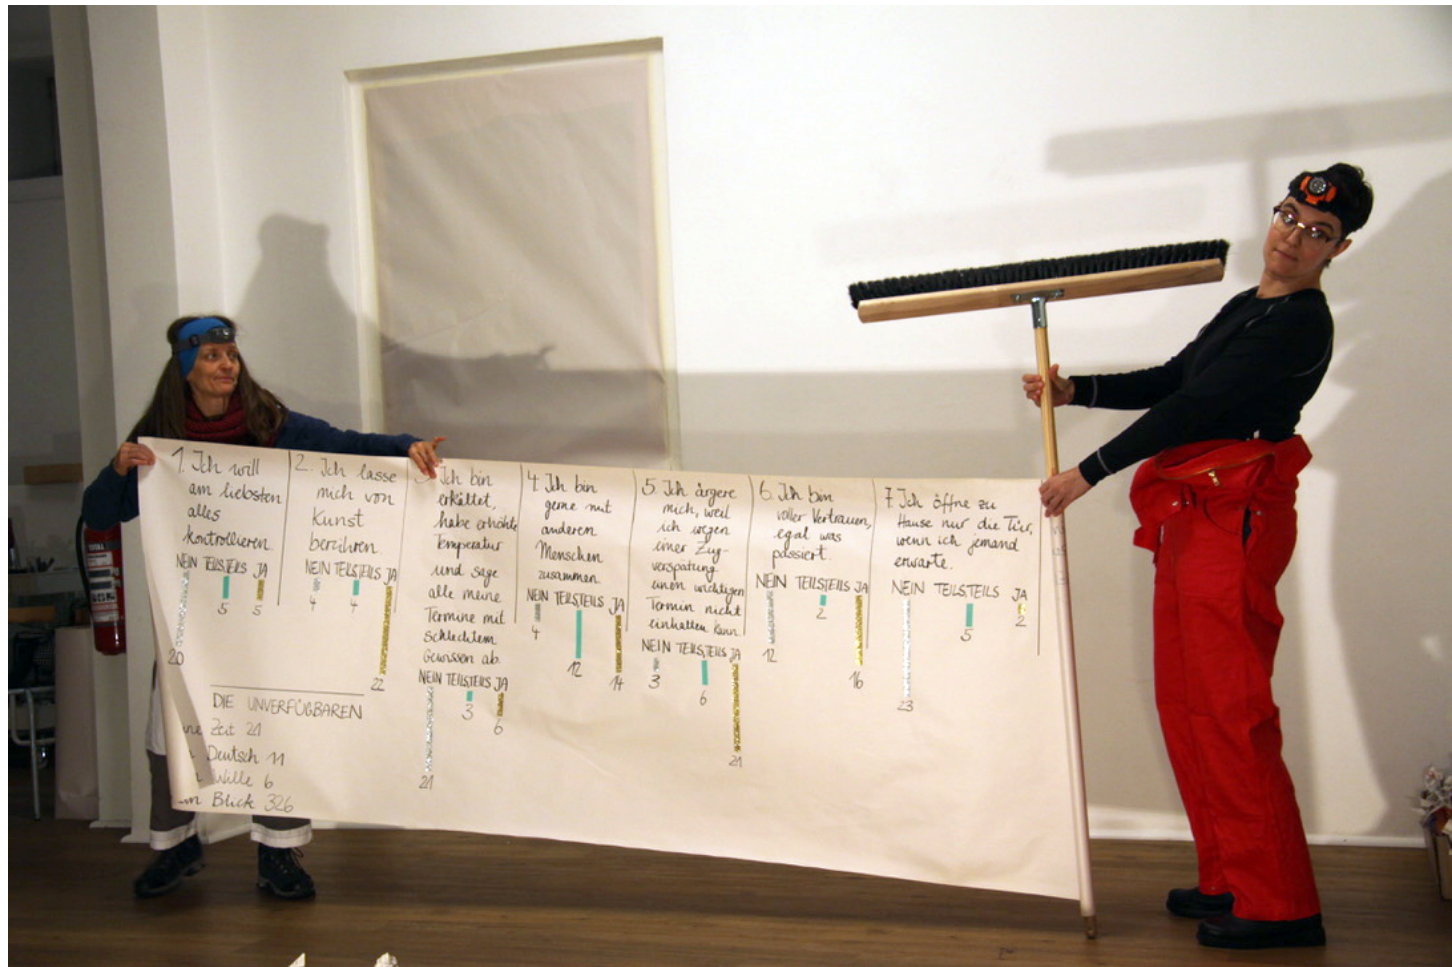 1. Ich will
am liebsten
alles
kontrollieren.
NEIN TEILSTEILS JA
20 5 5
2. Ich lasse
mich von
Kunst
berühren.
NEIN TEILSTEILS JA
4 4 22
Ich bin
erkältet,
habe erhöhte
Temperatur
und sage
alle meine
Termine mit
schlechtem
Gewissen ab.
NEIN TEILSTEILS JA
21 3 6
4. Ich bin
gerne mit
anderen
Menschen
zusammen.
NEIN TEILSTEILS JA
4 12 14
5. Ich ärgere
mich, weil
ich wegen
einer Zug-
verspätung
einen wichtigen
Termin nicht
einhalten kann.
NEIN TEILSTEILS JA
3 6 21
6. Ich bin
voller Vertrauen,
egal was
passiert.
NEIN TEILSTEILS JA
12 2 16
7. Ich öffne zu
Hause nur die Tür,
wenn ich jemand
erwarte.
NEIN TEILSTEILS JA
23 5 2
DIE UNVERFÜGBAREN
Zeit 21
Deutsch 11
Wille 6
Blick 326
TOTAL